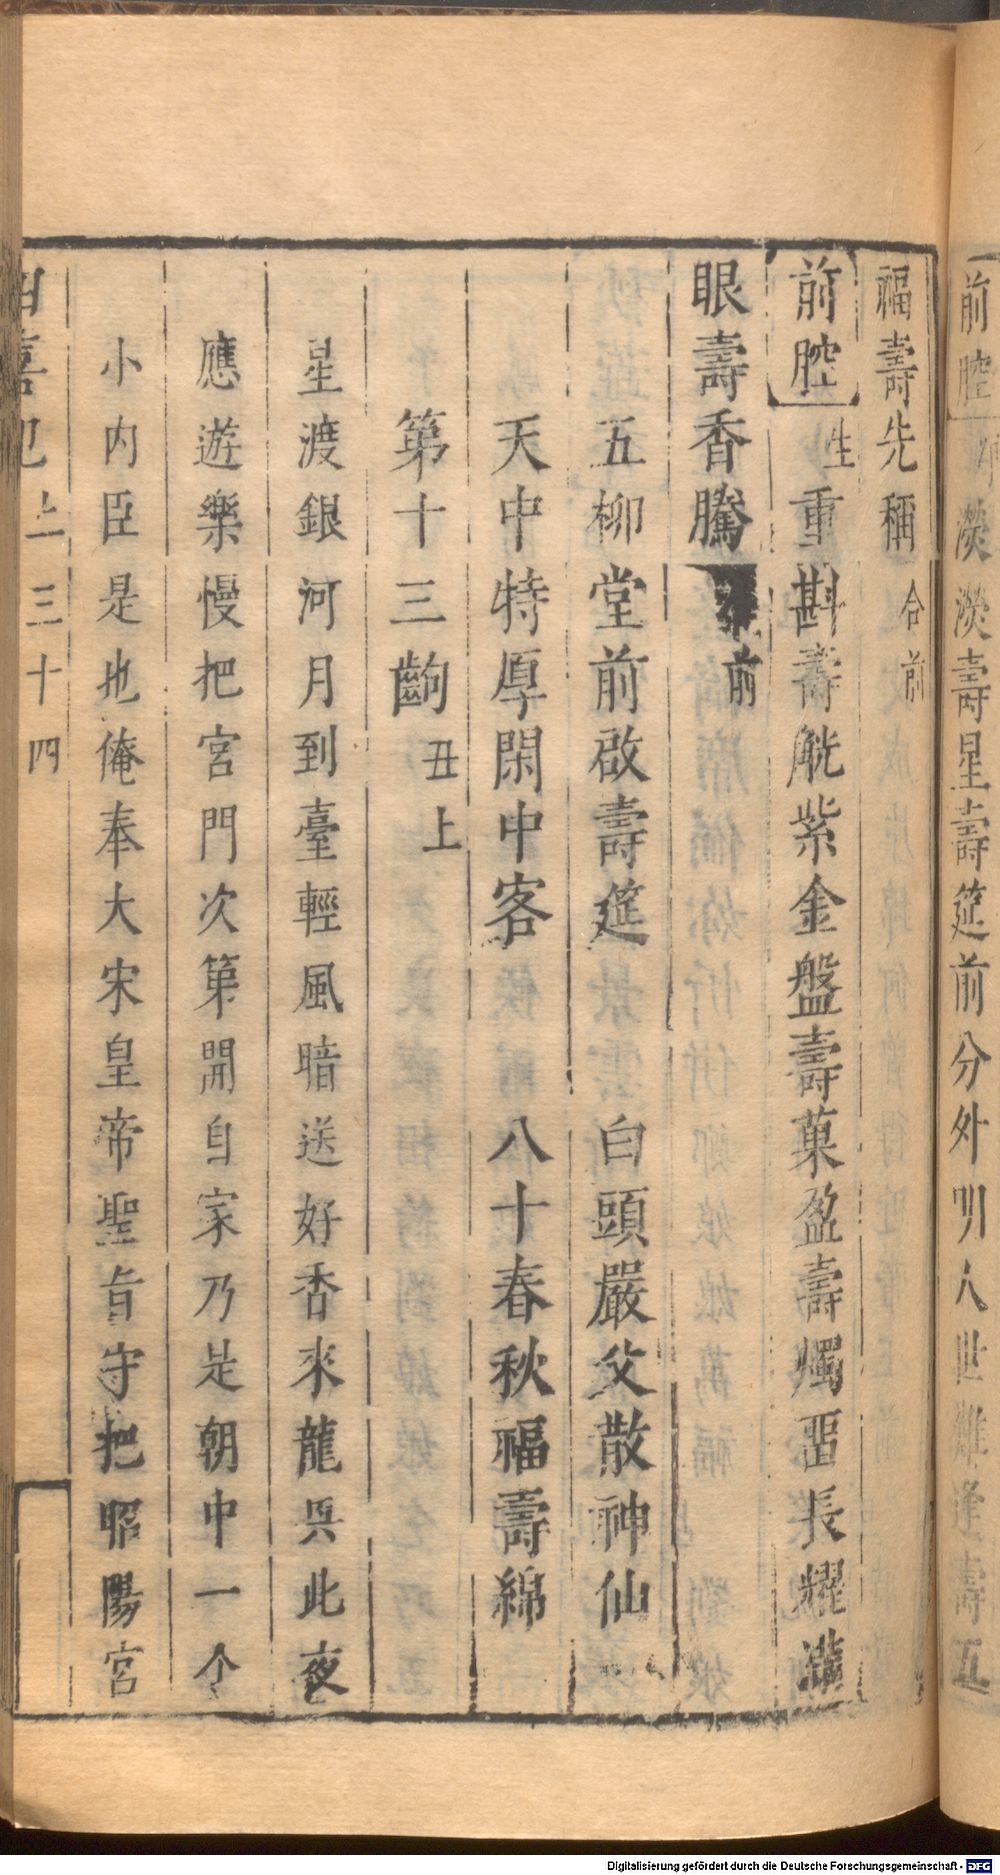 前腔
淡淡壽星壽筵前分外明人世難逢壽五
福壽先稱合前
前腔生重斟壽觥紫金盤壽菓盈壽燭畱長耀滿
眼壽香騰前
五柳堂前啟壽筵 白頭嚴父散神仙
天中特厚閑中客 八十春秋福壽綿
第十三齣丑上
星渡銀河月到臺輕風暗送好香來龍具此夜
應遊樂慢把宮門次第開自家乃是朝中一个
小內臣是也俺奉大宋皇帝聖旨守把昭陽宮
四喜記上三十四
Digitalisierung gefördert durch die Deutsche Forschungsgemeinschaft - DFG